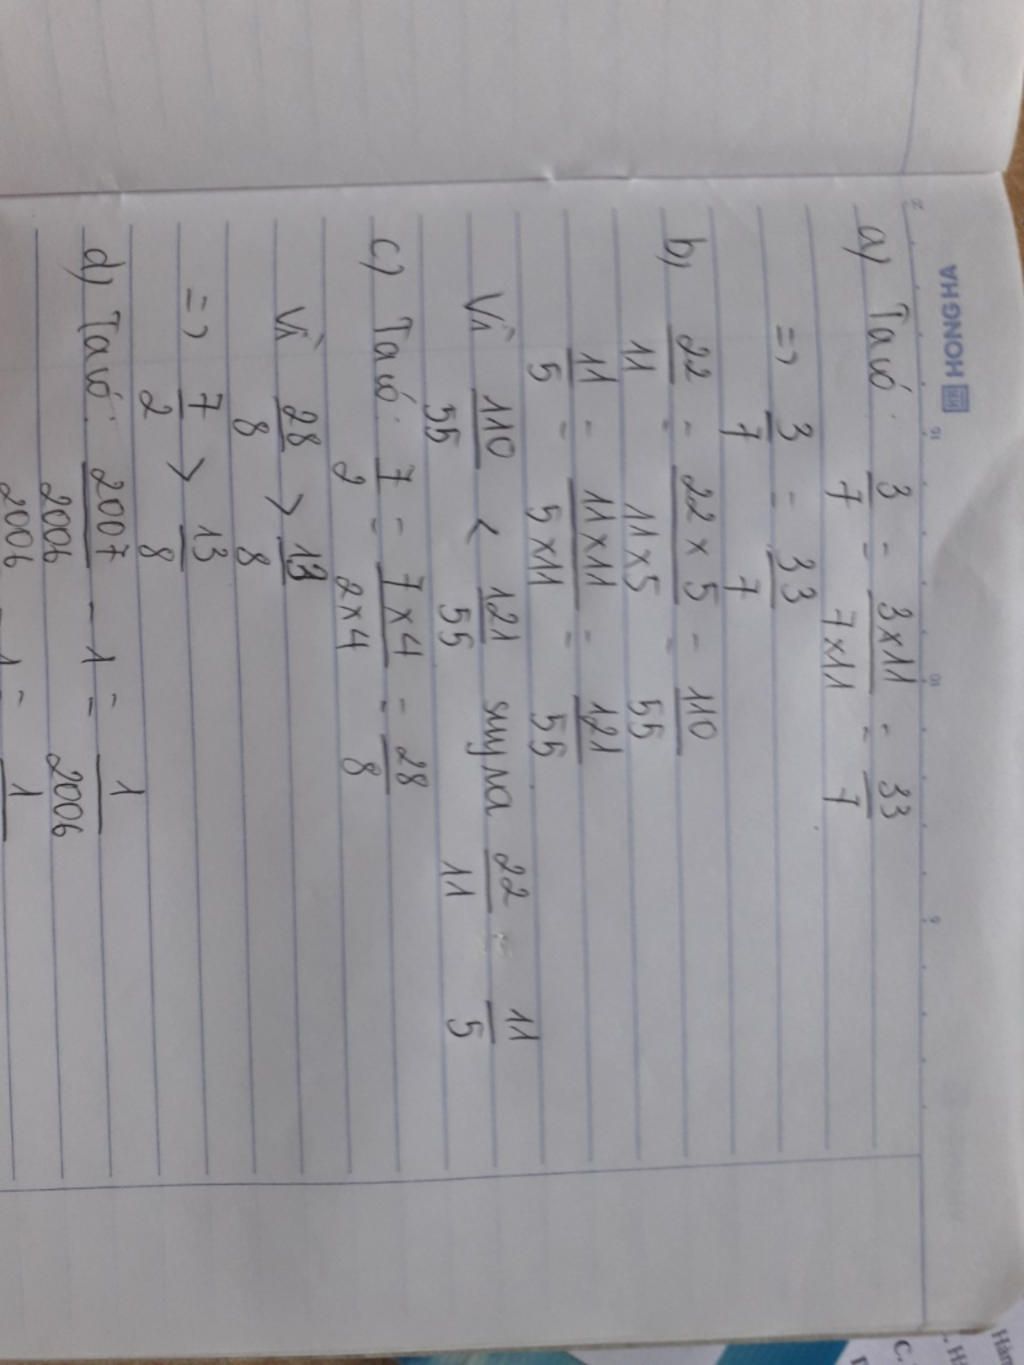 HH HONG HA
a) Ta có: 3/7 = 3x11/7x11 = 33/7
=> 3/7 = 33/7
b) 22/11 = 22x5/11x5 = 110/55
11/5 = 11x11/5x11 = 121/55
Vì 110/55 < 121/55 suy ra 22/11 11/5
c) Ta có: 7/2 = 7x4/2x4 = 28/8
Vì 28/8 > 13/8
=> 7/2 > 13/8
d) Ta có: 2007/2006 - 1 = 1/2006
2006 - 1 = 1